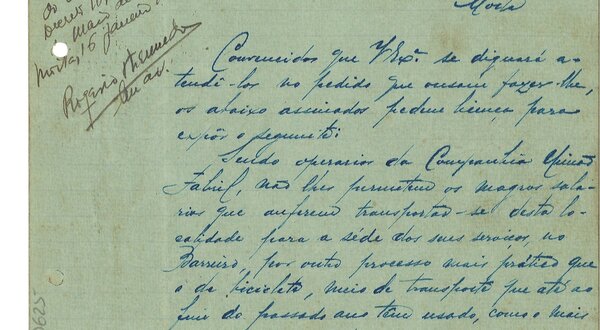 Moita
Decreto
maio de
Moita, 16 janeiro
Rogerio
Convencidos que V. Exª. se dignará a-
tendê-los no pedido que ousam fazer-lhe,
os abaixo assinados pedem licença para
expôr o seguinte:
Sendo operarios da Companhia União
Fabril, não lhes permetem os magros sala-
rios que auferem transportar-se desta lo-
calidade para a séde dos seus serviços, no
Barreiro, por outro processo mais prático que
o da bicicleta, meio de transporte que até ao
fim do passado ano têm usado, como o mais
0625-